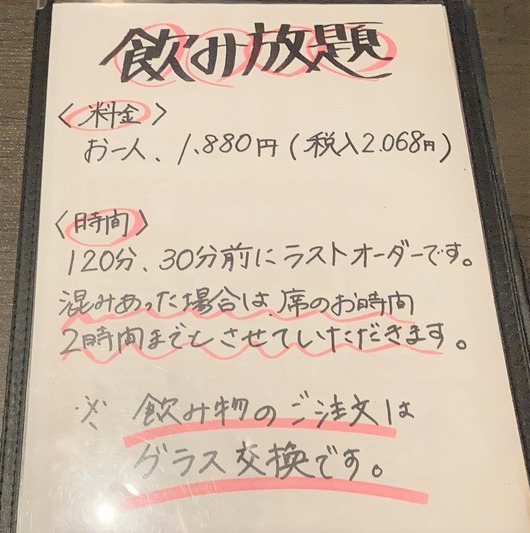 飲み放題
〈料金〉
お一人、1,880円(税入2.068円)
〈時間〉
120分、30分前にラストオーダーです。
混みあった場合は、席のお時間
2時間までとさせていただきます。
※ 飲み物のご注文は
グラス交換です。